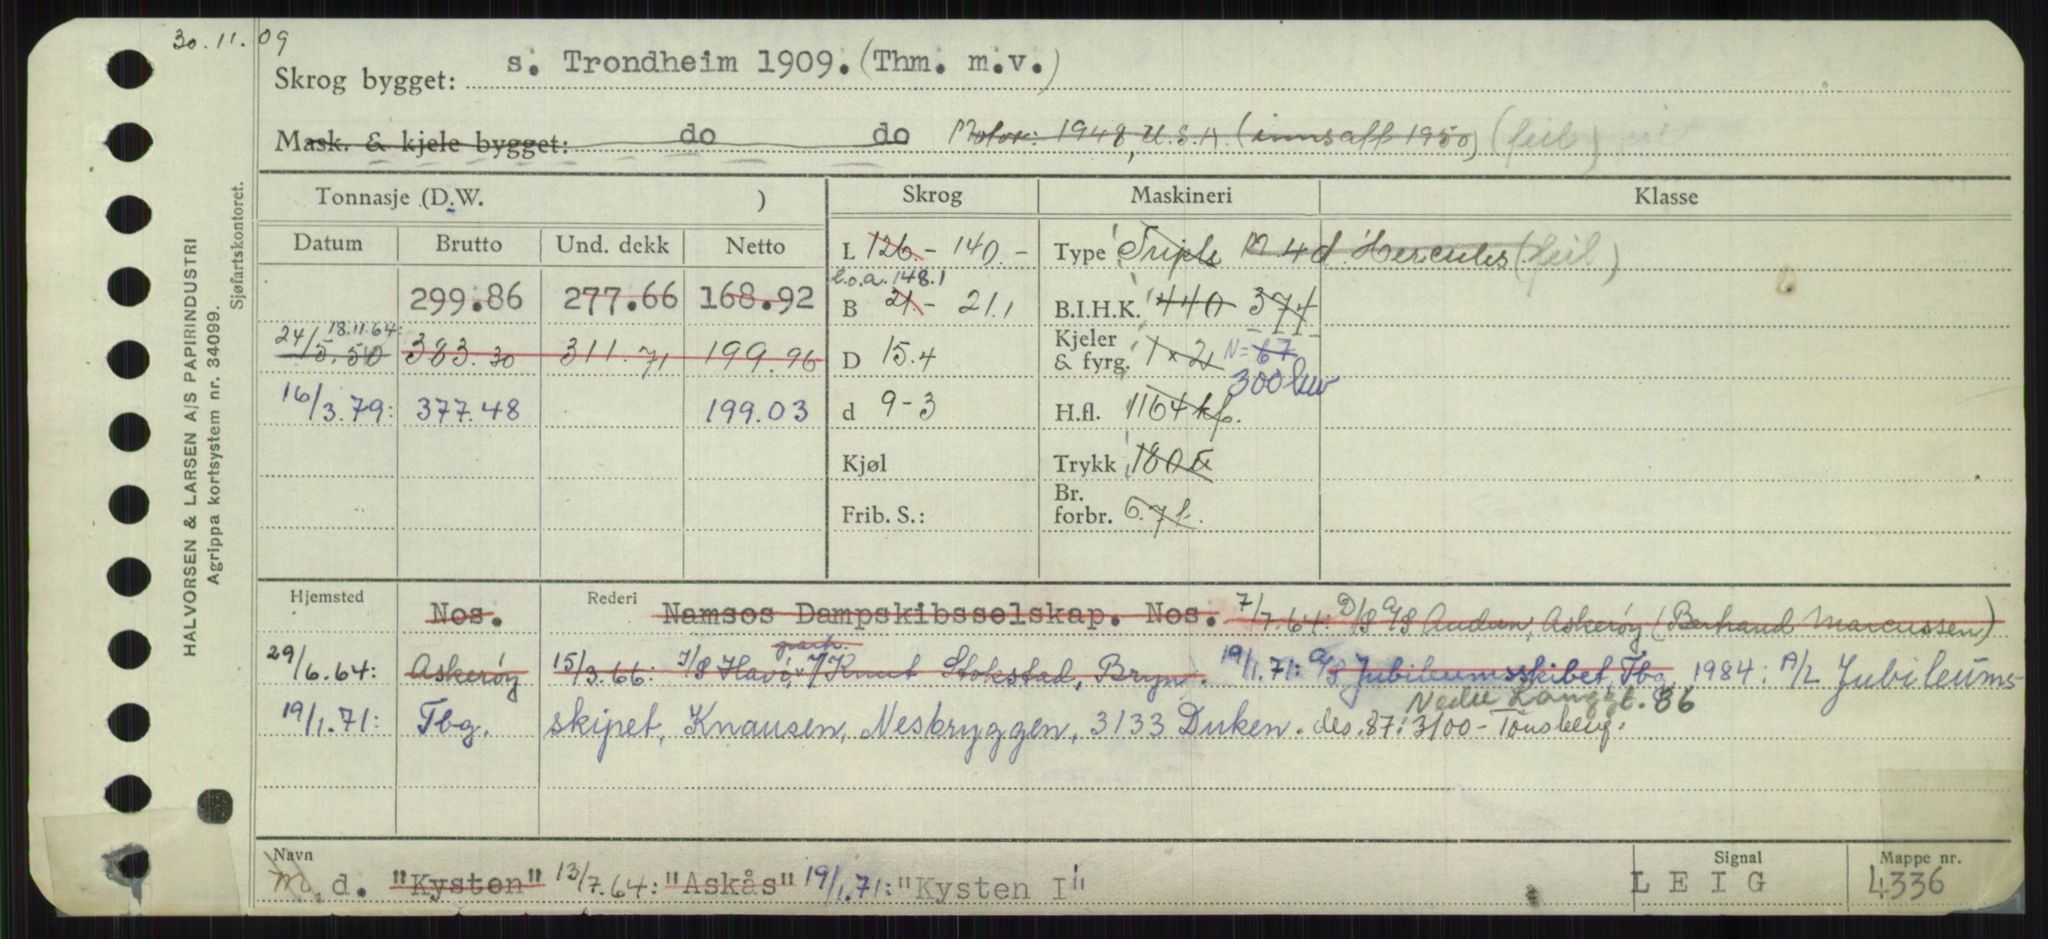 30.11.09
Skrog bygget: s. Trondheim 1909. (Thm. m.v.)
Mask. & kjele bygget: do do Motor: 1948, U.S.A. (innsatt 1950) (feil)
Tonnasje (D.W. ) Skrog Maskineri Klasse
Datum Brutto Und. dekk Netto L 126.- 140.- Type Triple M 4 d. Hercules (feil)
l.o.a. 148.1
299.86 277.66 168.92 B 21.- 21.1 B.I.H.K. 440 374
24/5.50 18.11.64: 383.30 311.71 199.96 D 15.4 Kjeler & fyrg. 1 x 2 N = 67
300 kw
16/3.79: 377.48 199.03 d 9-3 H.fl. 1164 kf.
Kjøl Trykk 180
Frib. S.: Br. forbr. 6.7 t.
Hjemsted Nos. Rederi Namsos Dampskibsselskap. Nos. 7/7.64: D/S A/S Audun, Askerøy (Berhand Marcussen)
part.
29/6.64: Askerøy 15/3.66: I/S Havø, v/ Knut Stokstad, Bryn. 19/1.71: A/S Jubileumsskibet, Tbg. 1984: A/L Jubileums-
Nedre Langgt. 86
19/1.71: Tbg. skipet, Knausen, Nesbryggen, 3133 Duken. des. 87: 3100 - Tønsberg.
Navn Signal Mappe nr.
M. d. "Kysten" 13/7.64: "Askås" 19/1.71: "Kysten I" L E I G 4336
HALVORSEN & LARSEN A/S PAPIRINDUSTRI
Agrippa kortsystem nr. 34099.
Sjøfartskontoret.